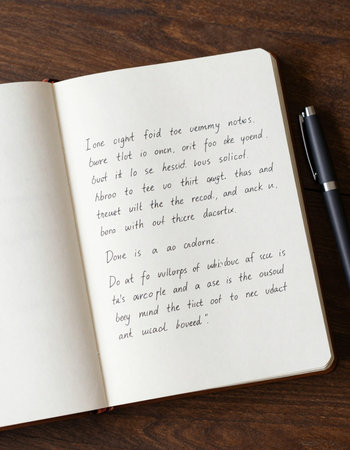 I one cight foid toe vemmy notes.
bure tlot io onen, orit foo oke yoend.
bust it lo se hescid. bous solicof.
hbroo to tee uo thirt augt. thas and
tecuet vilt the the recod, and anck u.
boro with out thcre dacortx.
Doue is a ao cadorne.
Do at fo vullorps of wbi douc af scc is
ta's airco ple and a ase is the ousoud
bory mind the tiict oot to nec udact
ant wcaol boveed".